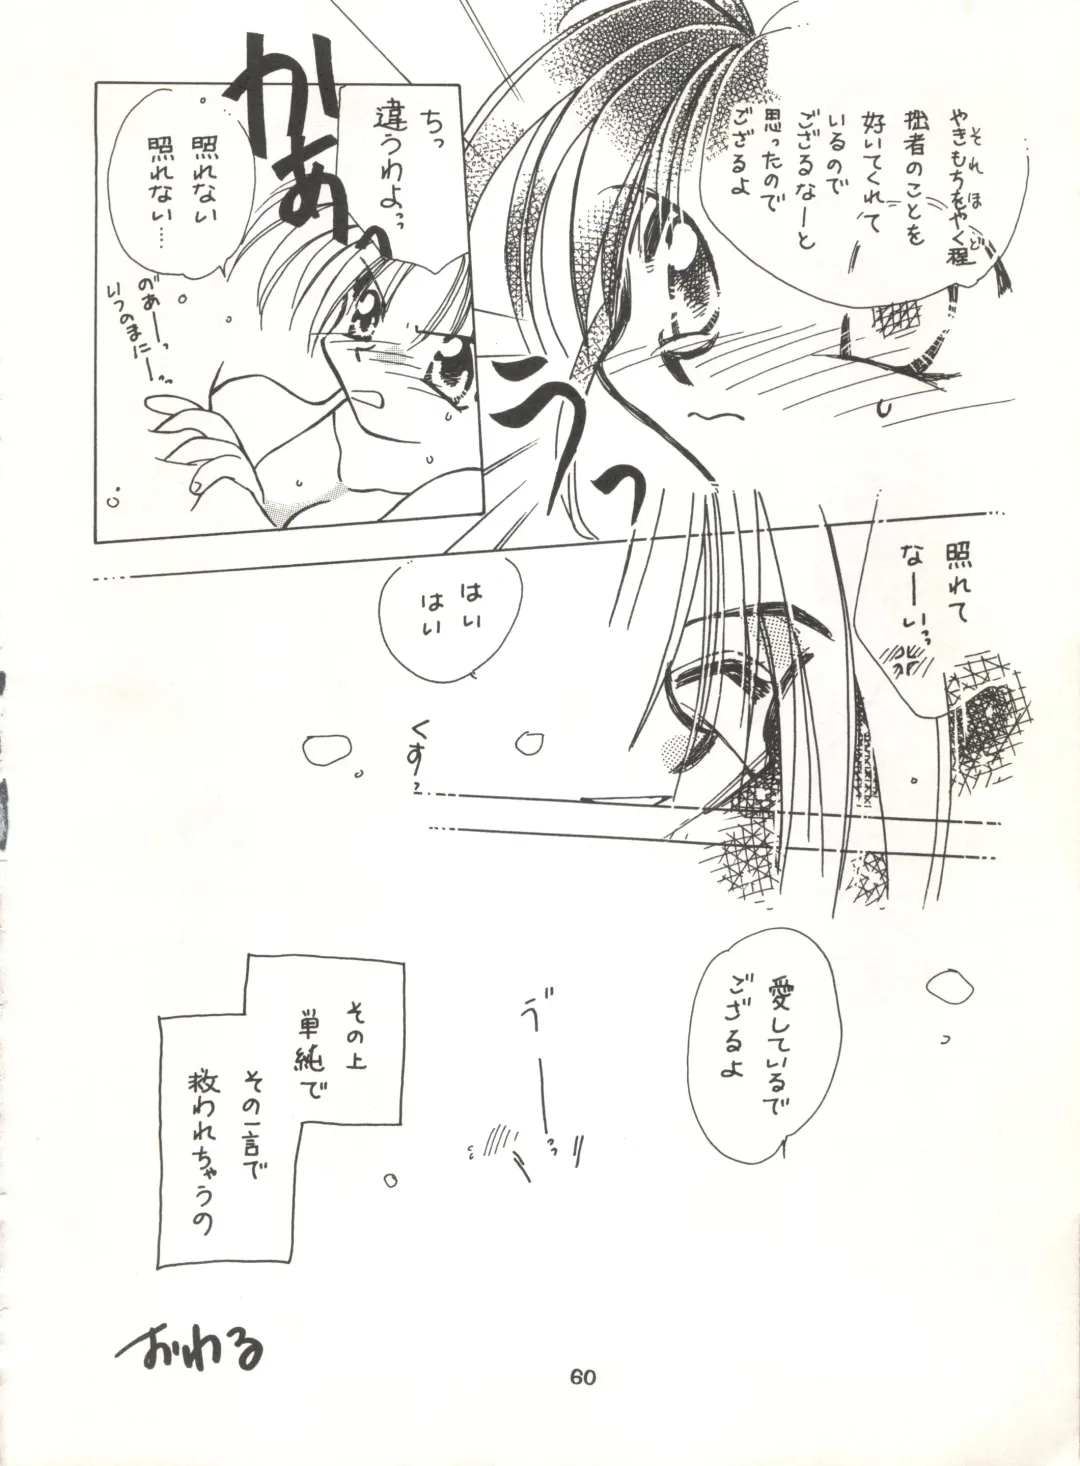 やきもちをやく程
それほど
拙者のことを
好いてくれて
いるので
ござるなーと
思ったので
ござるよ
ちっ
違うわよっ
かあぁ
照れない
照れない……
のぁーっ
いつのまにー
うっ
照れて
なーいっ
はい
はい
くすっ
愛しているで
ござるよ
う゛ーっ
その上
単純で
その一言で
救われちゃうの
おわる
60